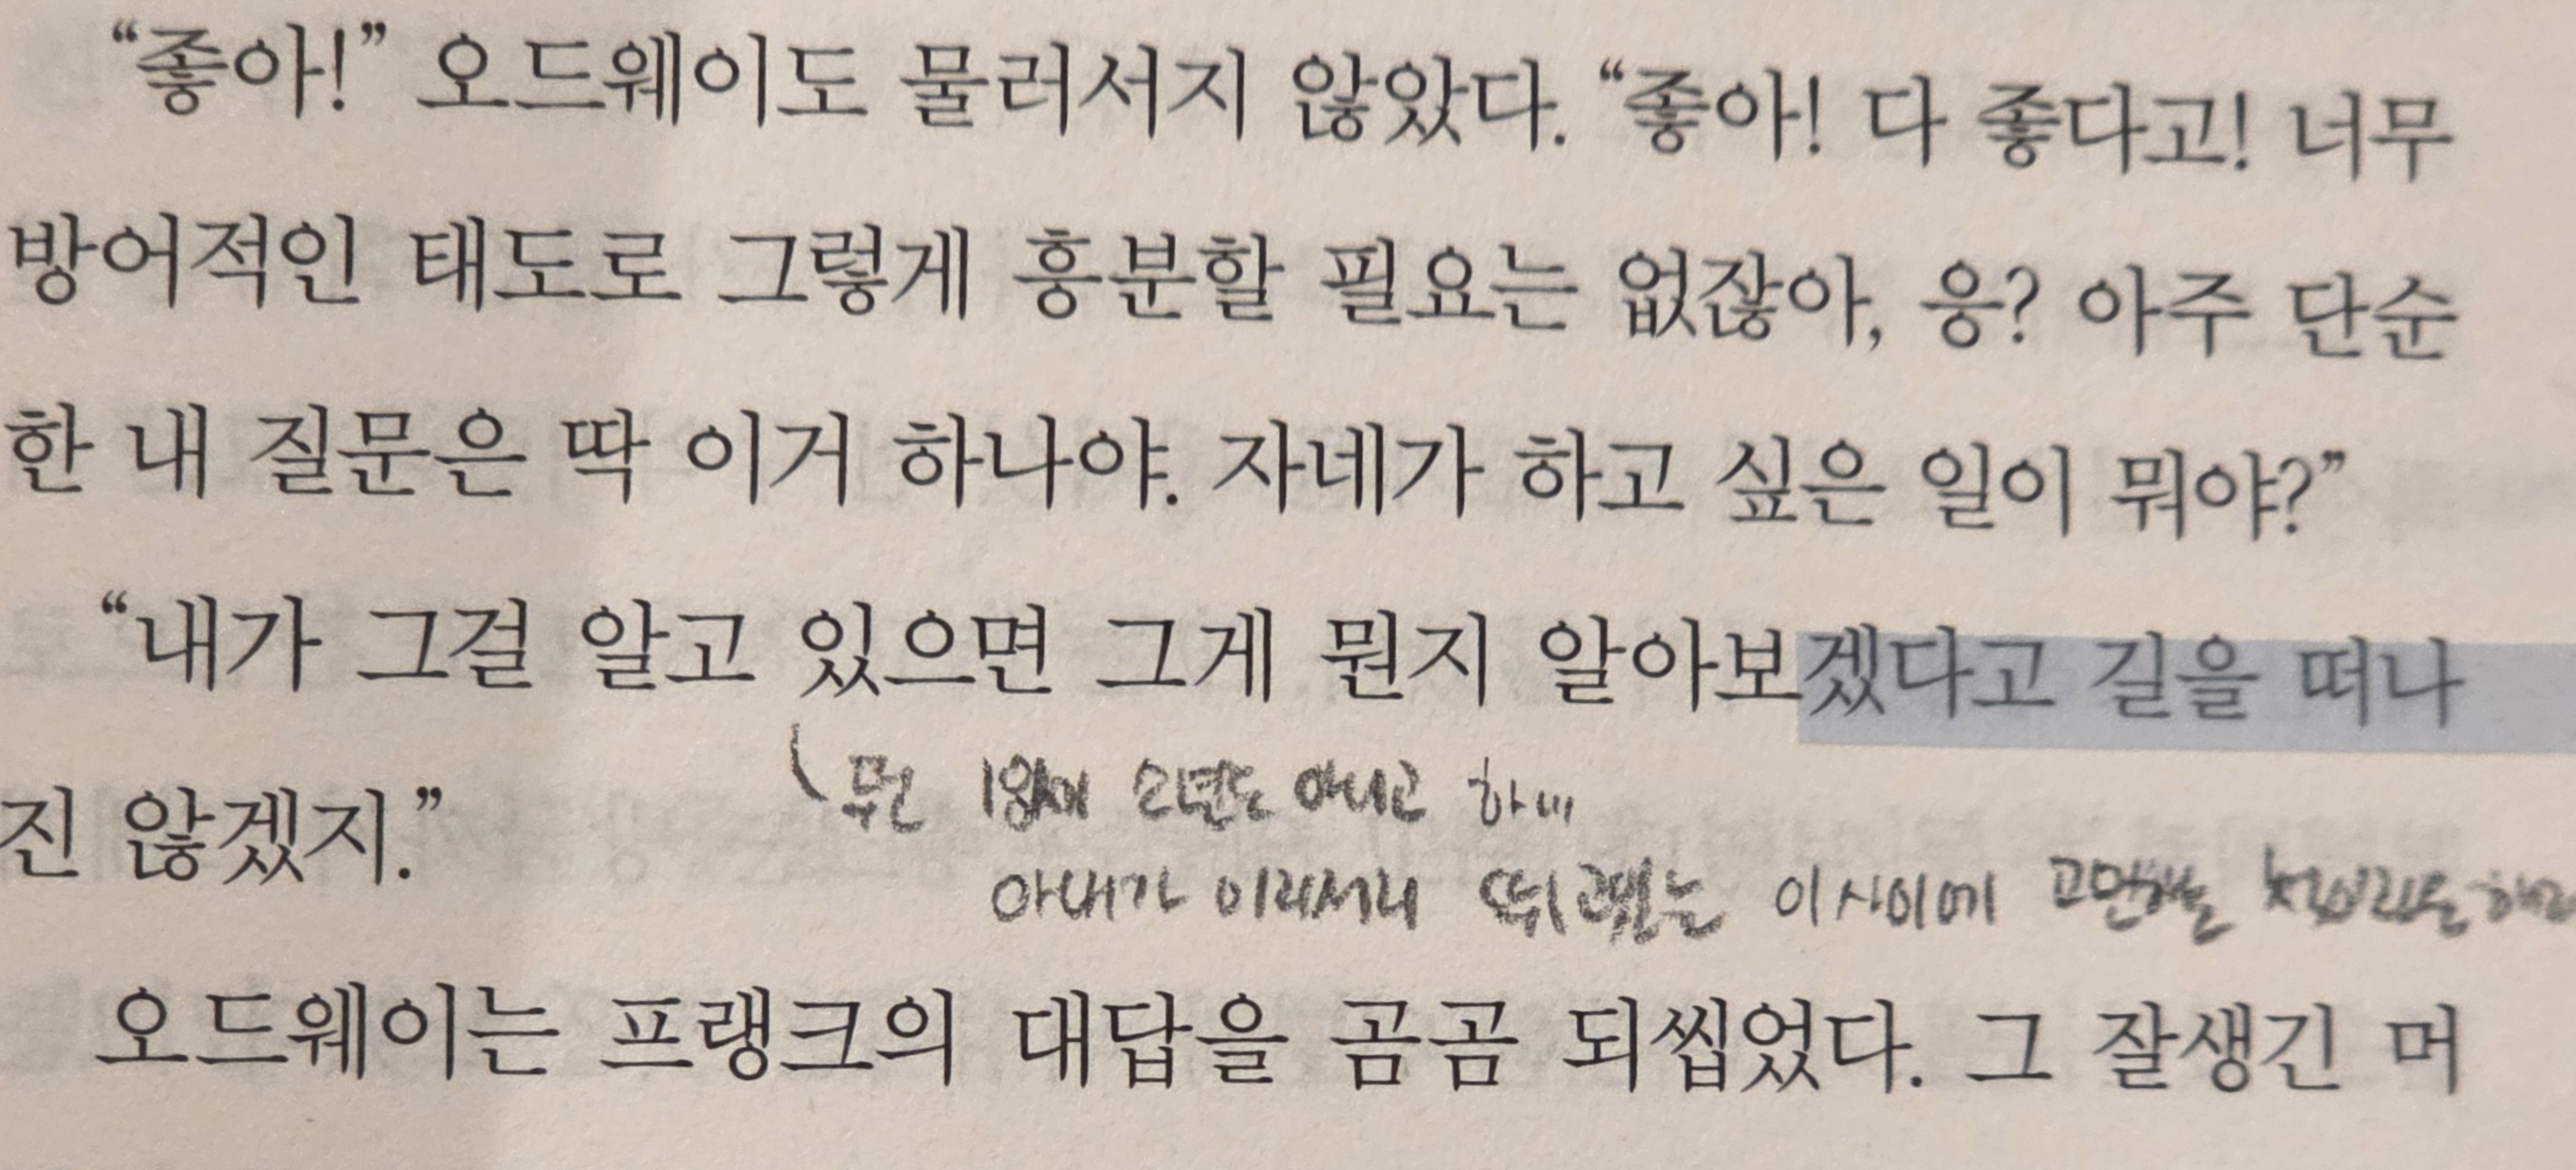 “좋아!” 오드웨이도 물러서지 않았다. “좋아! 다 좋다고! 너무
방어적인 태도로 그렇게 흥분할 필요는 없잖아, 응? 아주 단순
한 내 질문은 딱 이거 하나야. 자네가 하고 싶은 일이 뭐야?”
“내가 그걸 알고 있으면 그게 뭔지 알아보겠다고 길을 떠나
진 않겠지.”
2년도 아니고 하...
아내가 이 사이에
오드웨이는 프랭크의 대답을 곰곰 되씹었다. 그 잘생긴 머